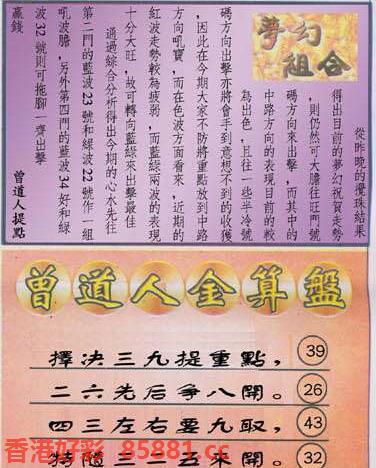 夢幻組合
從昨晚的攪珠結果
得出目前的夢幻祝賀走勢
，則仍然可大膽往旺門號
碼方向來出擊，而其中的
中路方向的表現目前的較
為出色，且往一些半冷號
碼方向出擊亦將會手到意想不到的收獲
，因此在今期大家不防將重點放到中路
方向吼寶，而在色波方面看來，近期的
紅波走勢較為疲弱，而藍綠兩波的表現
十分大旺，故可轉向藍綠來出擊最佳
通過綜合分析得出今期的心水先往
第二門的藍波23號和綠波22號作一組
吼波膽，另外第四門的藍波34好和綠
波32號則可拖腳一齊出擊
贏錢
曾道人提點
曾道人金算盤
擇決三九提重點，39
二六先后爭八開。26
四三左右要九取，43
特隨三二五來開。32
香港好彩 85881.cc